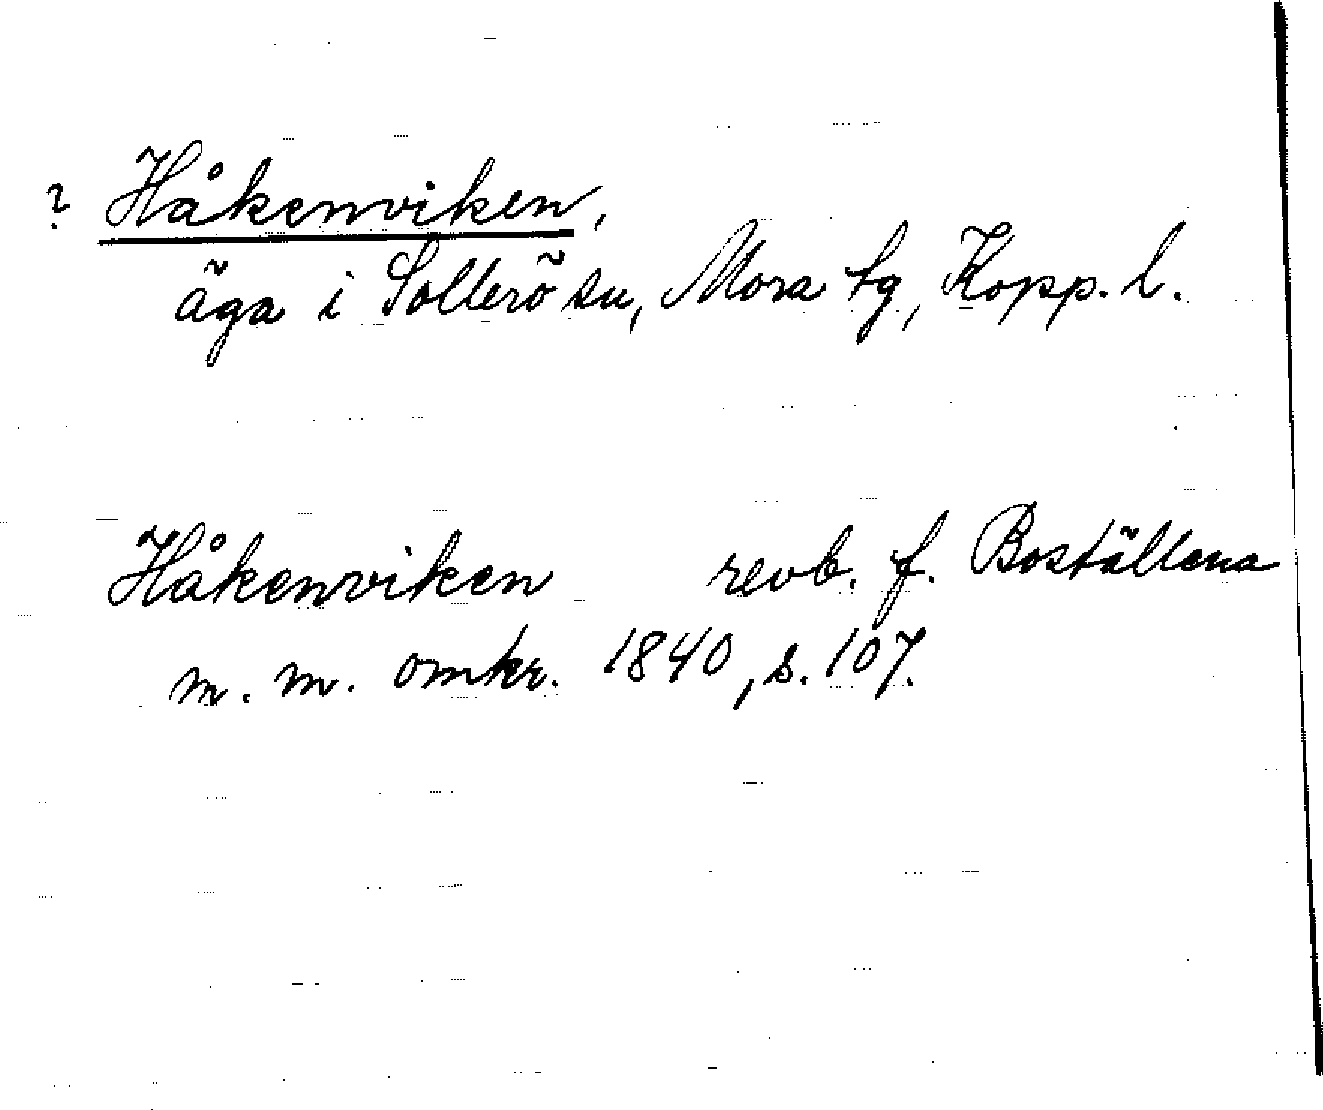 ? Håkenviken,
äga i Sollerö sn, Mora tg, Kopp. l.
Håkenviken revb. f. Boställena
m. m. omkr. 1840, s. 107.